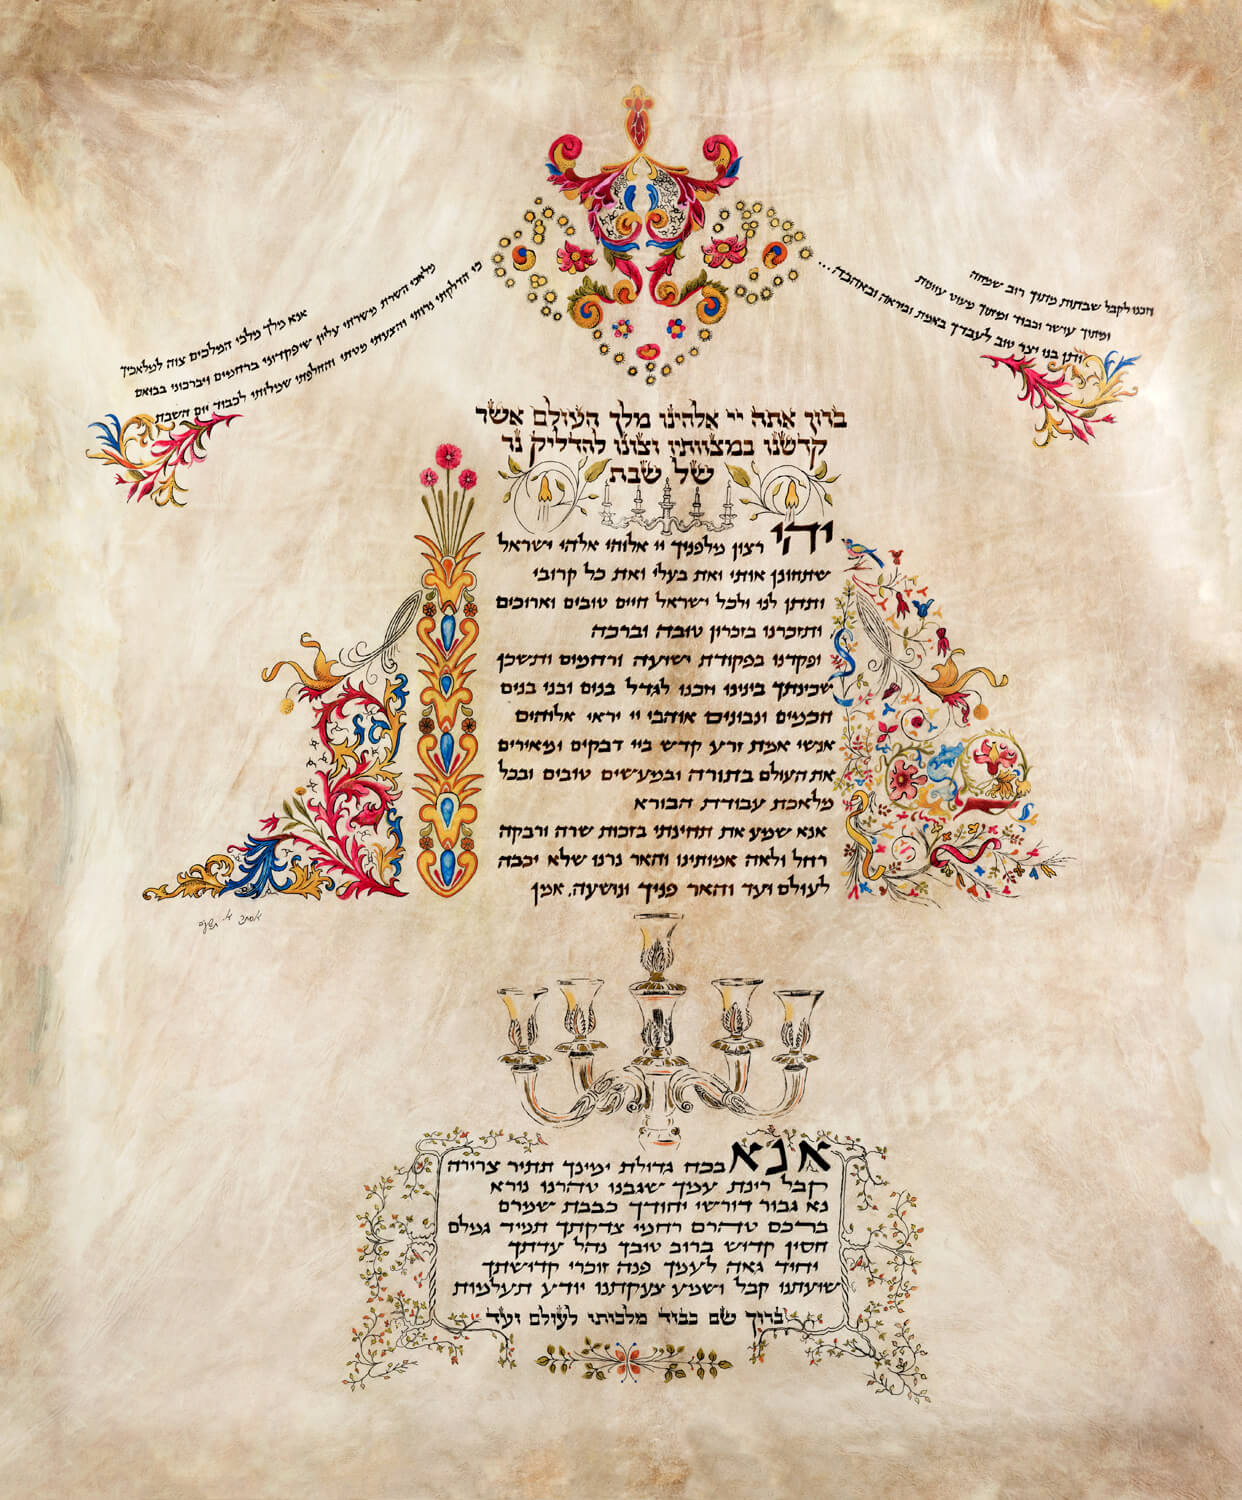 אנא מלך מלכי המלכים צוה למלאכיך
מלאכי השרת משרתי עליון שיפקדוני ברחמים ויברכוני בבואם
כי הדלקתי נרותי והצעתי מטתי והחלפתי שמלותי לכבוד יום השבת
וזכנו לקבל שבתות מתוך רוב שמחה
ומתוך עושר וכבוד ומתוך מיעוט עוונות
ותן בנו יצר טוב לעבדך באמת וביראה ובאהבה...
ברוך אתה יי אלהינו מלך העולם אשר
קדשנו במצוותיו וצונו להדליק נר
של שבת
יהי רצון מלפניך יי אלוהי אלהי ישראל
שתחונן אותי ואת בעלי ואת כל קרובי
ותתן לנו ולכל ישראל חיים טובים וארוכים
ותזכרנו בזכרון טובה וברכה
ופקדנו בפקודת ישועה ורחמים ותשכן
שכינתך בינינו וזכנו לגדל בנים ובני בנים
חכמים ונבונים אוהבי יי יראי אלוהים
אנשי אמת זרע קדש ביי דבקים ומאירים
את העולם בתורה ובמעשים טובים ובכל
מלאכת עבודת הבורא
אנא שמע את תחינתי בזכות שרה ורבקה
רחל ולאה אמותינו והאר נרנו שלא יכבה
לעולם ועד והאר פניך ונושעה. אמן
אנא בכח גדולת ימינך תתיר צרורה
קבל רינת עמך שגבנו טהרנו נורא
נא גבור דורשי יחודך כבבת שמרם
ברכם טהרם רחמי צדקתך תמיד גמלם
חסין קדיש ברוב טובך נהל עדתך
יחיד גאה לעמך פנה זוכרי קדישתך
שועתנו קבל ושמע צעקתנו יודע תעלמות
ברוך שם כבוד מלכותו לעולם ועד